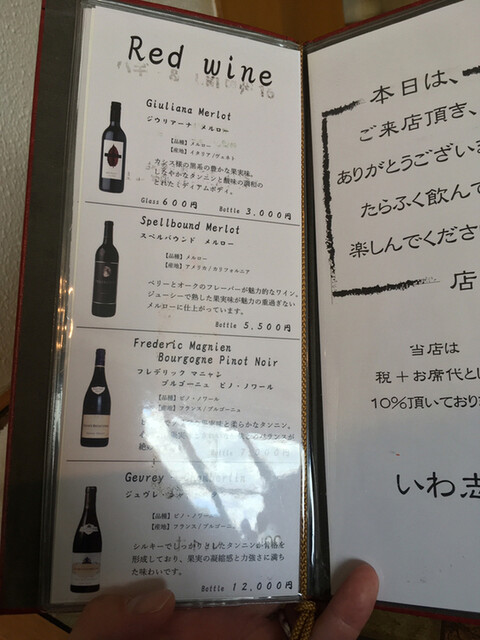 Red wine
Giuliana Merlot
ジウリアーナ メルロー
【品種】メルロー
【産地】イタリア/ヴェネト
カシス様の黒系の豊かな果実味。
しなやかなタンニンと酸味の調和の
とれたミディアムボディ。
Glass 600円 Bottle 3,000円
Spellbound Merlot
スペルバウンド メルロー
【品種】メルロー
【産地】アメリカ/カリフォルニア
ベリーとオークのフレーバーが魅力的なワイン。
ジューシーで熟した果実味が魅力の重過ぎない
メルローに仕上がっています。
Bottle 5,500円
Frederic Magnien
Bourgogne Pinot Noir
フレデリック マニャン
ブルゴーニュ ピノ・ノワール
【品種】ピノ・ノワール
【産地】フランス/ブルゴーニュ
果実味と柔らかなタンニン。
バランスが
Bottle
Gevrey
ジュヴレ
【品種】ピノ・ノワール
【産地】フランス/ブルゴーニュ
シルキーでしっかりとしたタンニンが骨格を
形成しており、果実の凝縮感と力強さに満ち
た味わいです。
Bottle 12,000円
本日は、
ご来店頂き、
ありがとうございま
たらふく飲んで
楽しんでくださ
店
当店は
税+お席代とし
10%頂いており
いわ志